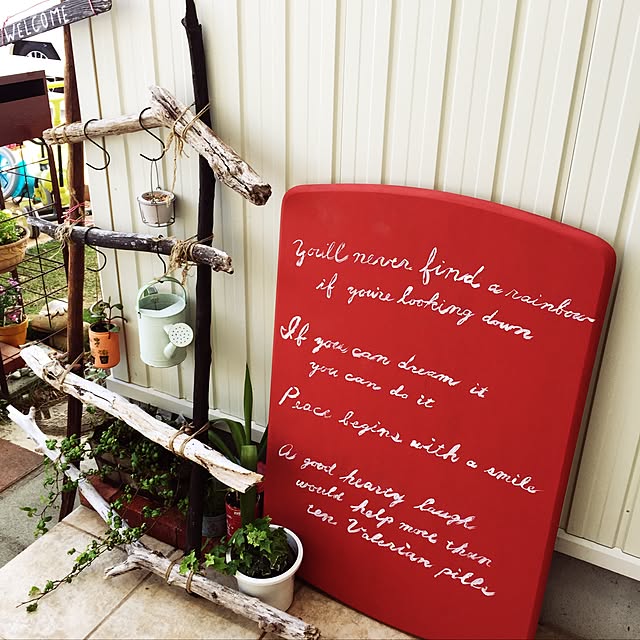 WELCOME
You'll never find a rainbow
if you're looking down
If you can dream it
you can do it
Peace begins with a smile
A good hearty laugh
would help more than
ten Valerian pills